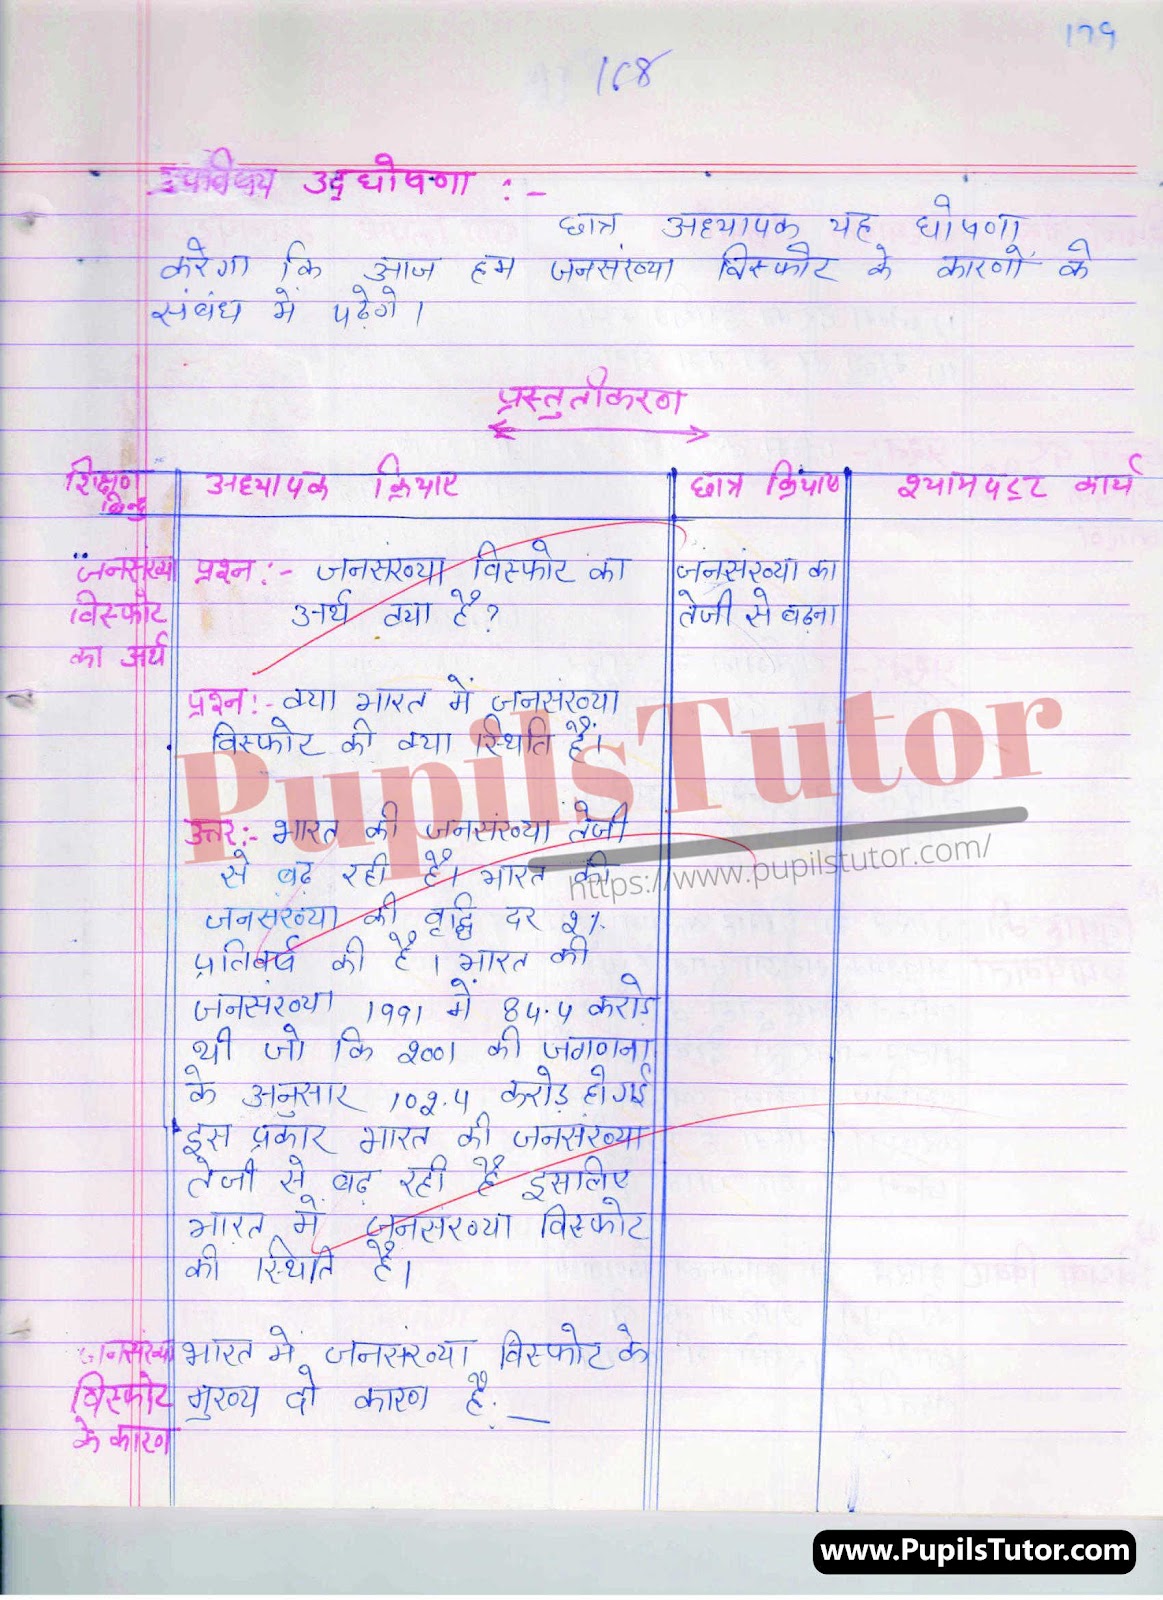 179
168
उपविषय उद्घोषणा :-
छात्र अध्यापक यह घोषणा
करेगा कि आज हम जनसंख्या विस्फोट के कारणों के
संबंध में पढ़ेगे।
प्रस्तुतीकरण
शिक्षण बिन्दु
अध्यापक क्रियाए
छात्र क्रियाए
श्यामपट्ट कार्य
जनसंख्या
विस्फोट
का अर्थ
प्रश्न:- जनसंख्या विस्फोट का
अर्थ क्या है?
जनसंख्या का
तेजी से बढ़ना
प्रश्न:- क्या भारत में जनसंख्या
विस्फोट की क्या स्थिति है।
उत्तर:- भारत की जनसंख्या तेजी
से बढ़ रही है। भारत की
जनसंख्या की वृद्धि दर 2%
प्रतिवर्ष की है। भारत की
जनसंख्या 1991 में 84.4 करोड़
थी जो कि 2001 की जगणना
के अनुसार 102.4 करोड़ हो गई
इस प्रकार भारत की जनसंख्या
तेजी से बढ़ रही है इसलिए
भारत में जनसंख्या विस्फोट
की स्थिति है।
जनसंख्या
विस्फोट
के कारण
भारत में जनसंख्या विस्फोट के
मुख्य दो कारण है:—
PupilsTutor
https://www.pupilstutor.com/
www.PupilsTutor.com